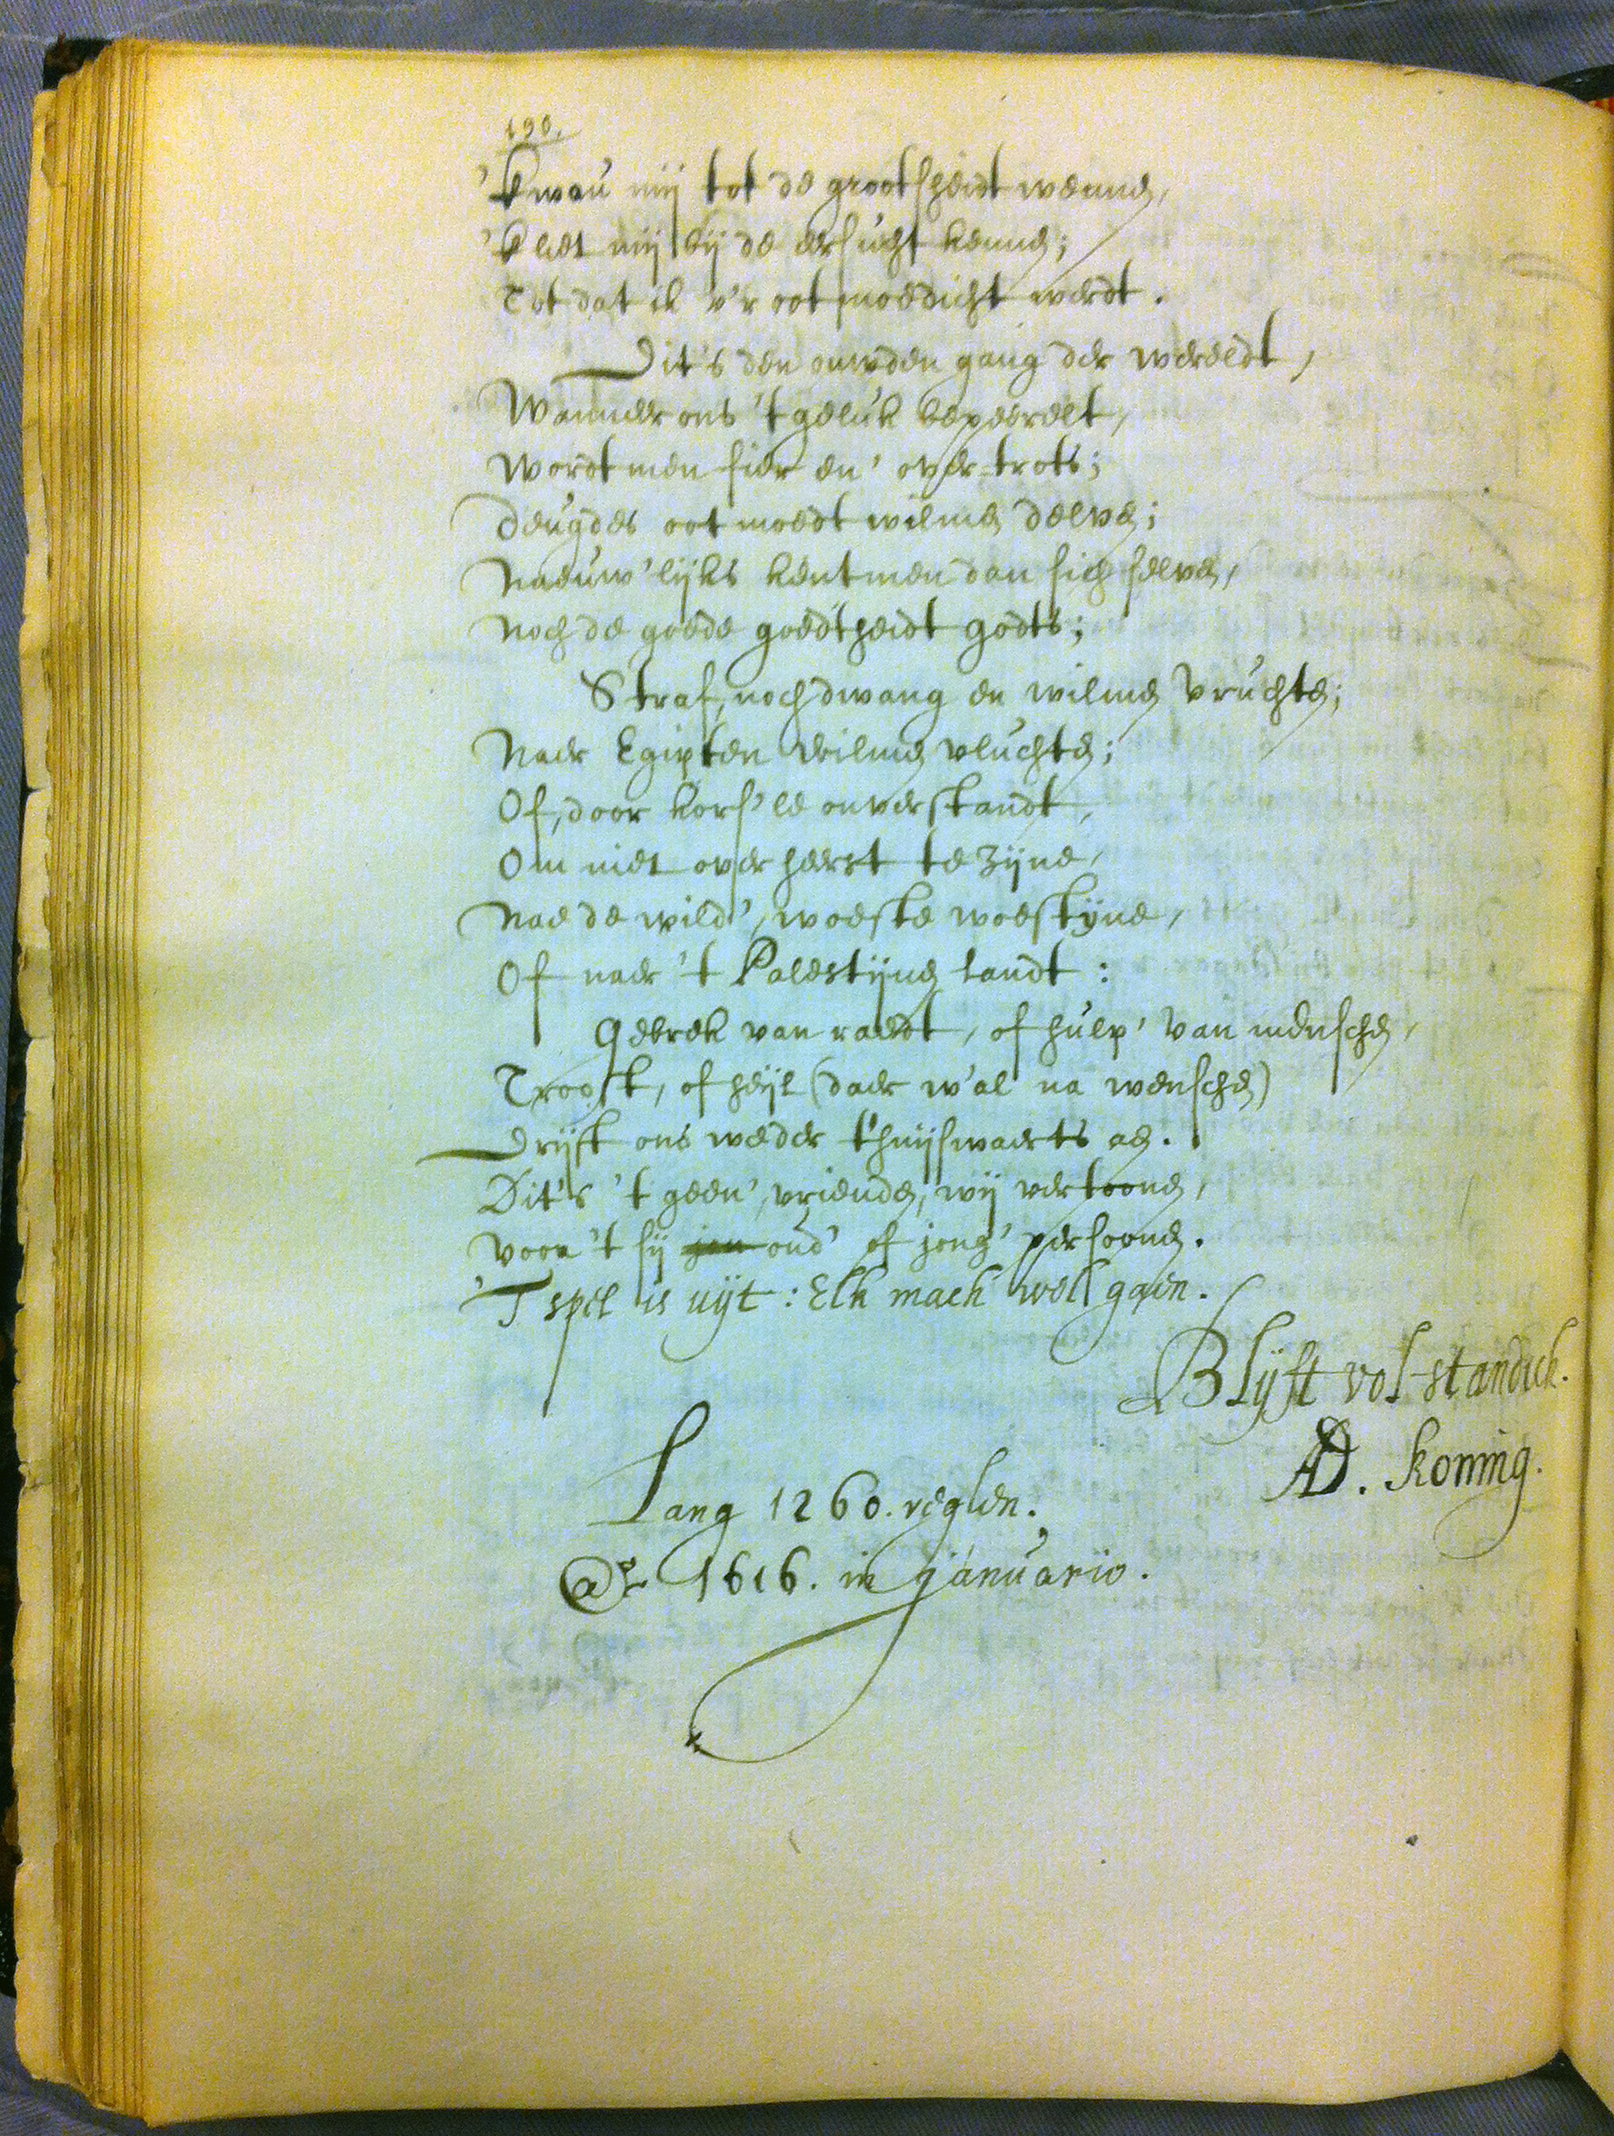 190.
'k wou mij tot de grootsheidt wennen,
'k liet mij bij de eersucht kennen;
Tot dat ik v'rootmoedicht werdt.
Dit's den ouwden gang der wereldt,
Wanneer ons 't geluk bepeerelt,
Wordt men fier en' over-trots;
Deugdes ootmoedt wilmen delven;
Naeuw'lijks kentmen dan sich selven,
Noch de goede goedtheidt Godts;
Straf, noch dwang en wilmen vruchten;
Naer Egipten wilmen vluchten;
Of, door kors'le onverstandt,
Om niet over heerst te zijne,
Nae de wild', woeste woestijne,
Of naer 't Palestijnen landt:
Gebrek van raedt, of hulp' van menschen,
Troost, of heijl (daer w'al na wenschen)
Drijft ons weder t'huijswaerts aen.
Dit's 't geen', vrienden, wij vertoonen,
Voor 't sij jon oud' of jong' persoonen.
'T spel is uijt: Elk mach wel gaen.
Blijft vol-standich.
AD. Koning.
Lang 1260. reglen.
Ao 1616. in januario.